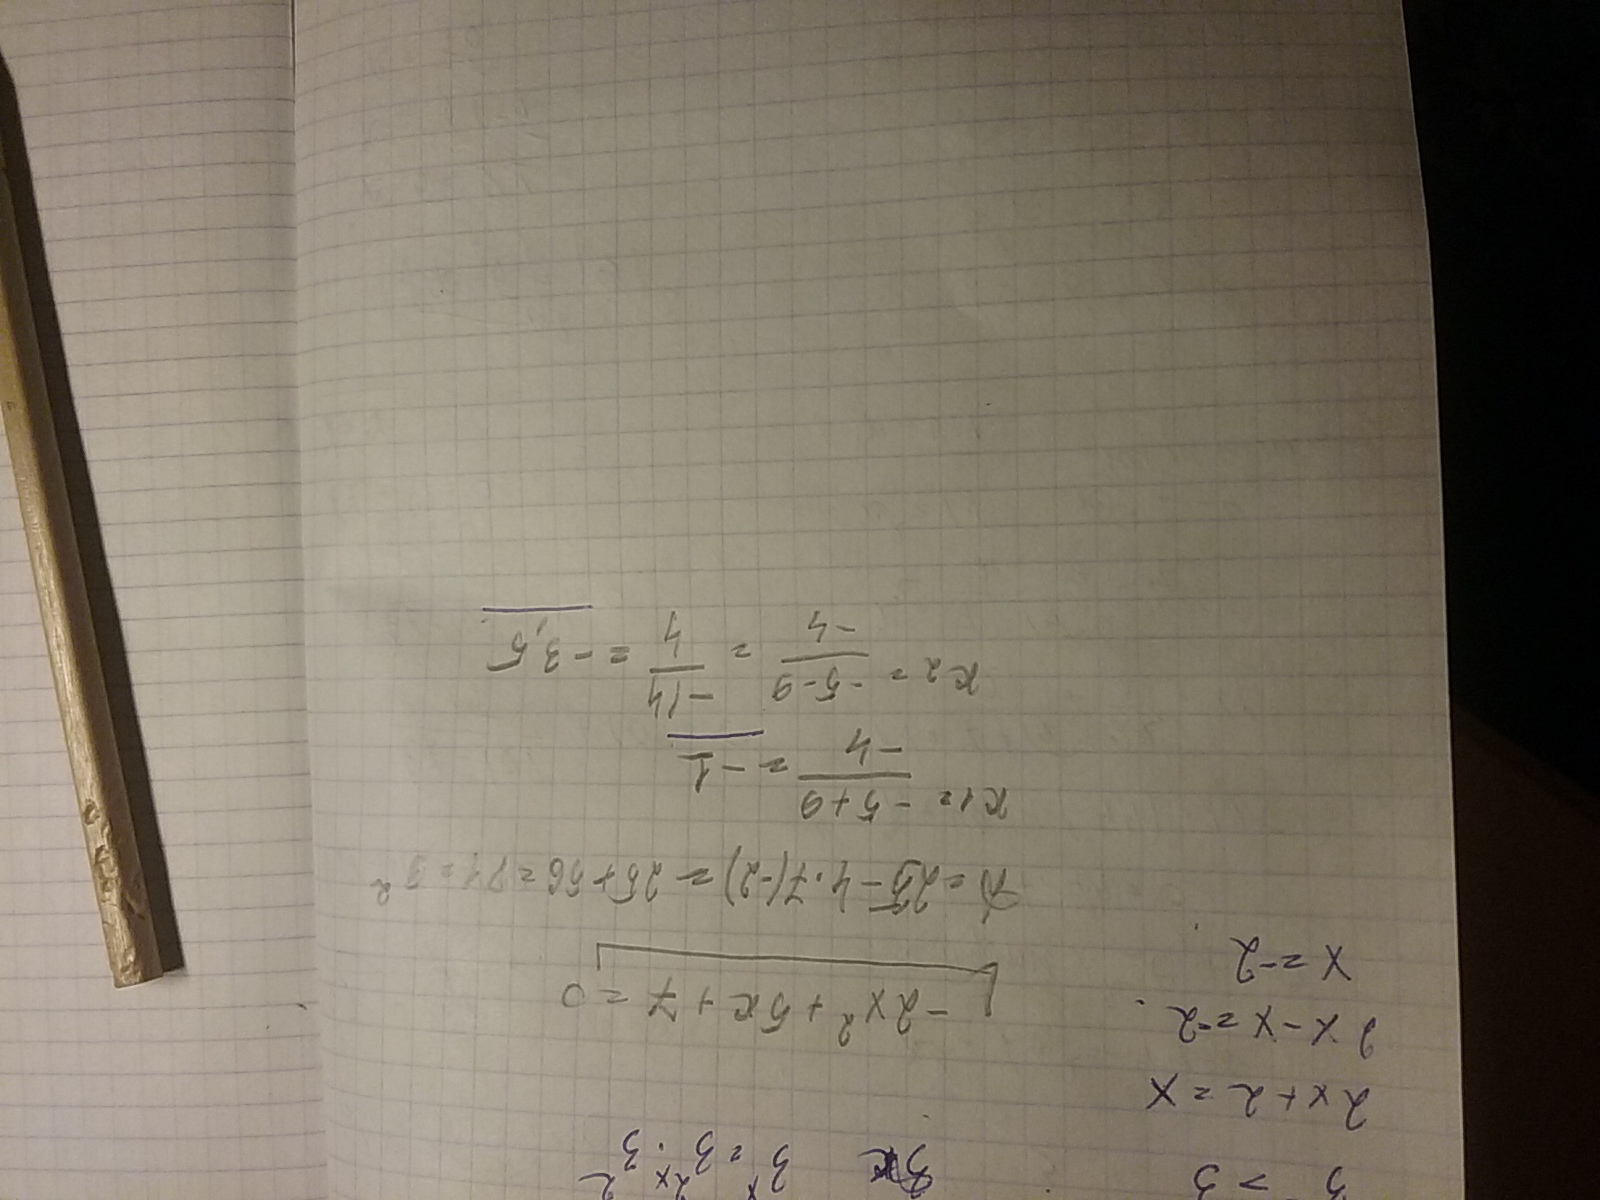 3 = 3
3ˣ = 3²ˣ · 3²
2x + 2 = x
2x - x = -2
x = -2
-2x² + 5x + 7 = 0
D = 25 - 4 · 7(-2) = 25 + 56 = 71 = 9²
x1 = -5+9/-4 = -1
x2 = -5-9/-4 = -14/4 = -3,5